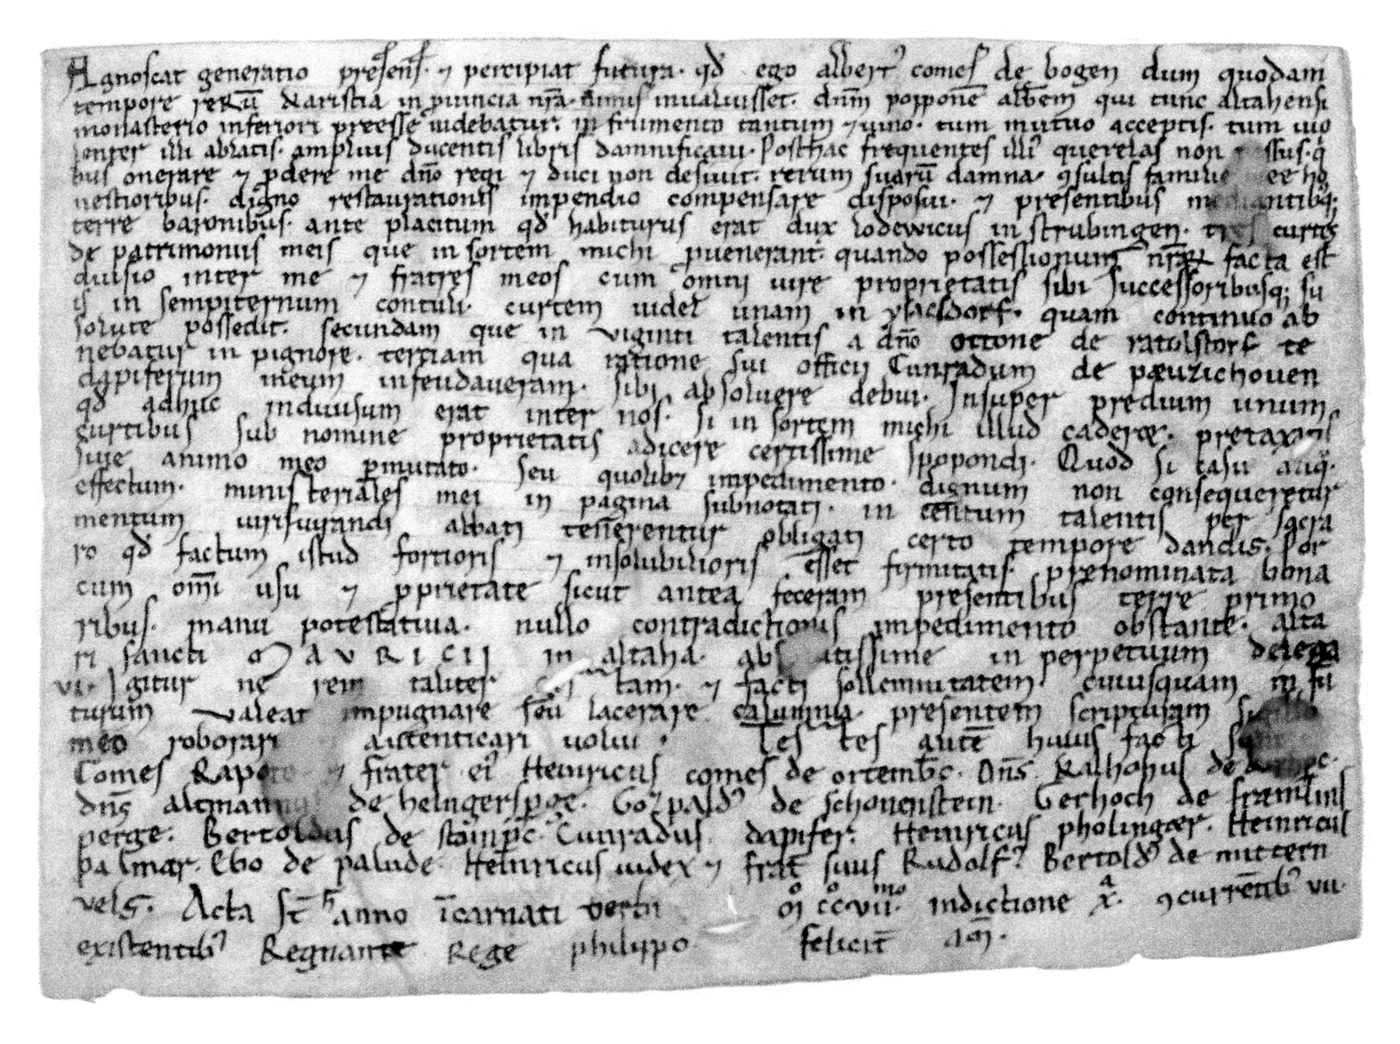 Agnoscat generatio presens. ⁊ percipiat futura. qđ ego albert᾽ comes de bogen dum quodam
tempore rerū karistia in ꝓuincia nrā nimis inualuisset. dnm̄ popponē abbem̄ qui tunc altahensi
monasterio inferiori preesse uidebatur. in frumento tantum ⁊ uino. tum mutuo acceptis. tum uio
lenter illi ablatis. amplius ducentis libris damnificaui. Posthac frequentes illi᾽ querelas non qͥ
bus onerare ⁊ ꝑdere me dn̄o regi ⁊ duci non desiuit. rerum suarū damna. ꝯsultis familie mee ho
nestioribus. digno restaurationis impendio compensare disposui. ⁊ presentibus mediantibꝫ
terre baronibus. ante placitum qđ habiturus erat dux lodewicus in strubingen. tres curtes
de patrimoniis meis que in sortem michi ꝓuenerant. quando possessionum nr̄arꝝ facta est
diuisio inter me ⁊ fratres meos cum omni iure proprietatis sibi successoribusqꝫ su
is in sempiternum contuli. curtem uidel unam in ylacsdorf. quam continuo ab
solute possedit. secundam que in viginti talentis a dn̄o ottone de ratolstorf te
nebatur in pignore. terciam qua ratione sui officii Cunradum de pæuzichouen
dapiferum meum infeudaueram. sibi absoluere debui. Insuper predium unum
qđ adhuc indiuisum erat inter nos. si in sortem michi illud caderæ. pretaxatis
curtibus sub nomine proprietatis adicere certissime spopondi. Quod si casu aliqͦ.
siue animo meo ꝑmutato. seu quolibꝫ impedimento. dignum non consequeretur
effectum. ministeriales mei in pagina subnotati. in centum talentis per sacra
mentum iurisiurandi abbati tenerentur obligati certo tempore dandis. Por
ro qđ factum istud fortioris ⁊ insolubilioris esset firmitatis. prænominata bona
cum om̄i usu ⁊ ꝓprietate sicut antea feceram presentibus terre primo
ribus. manu potestatiua. nullo contradictionis impedimento obstante. alta
ri sancti MAURICII in altaha. in perpetuum delega
ui. Igitur ne rem taliter tam. ⁊ facti sollemnitatem. cuiusquam in fu
turum valeat impugnare seu lacerare calumnia. presentem scripturam sigillo
meo roborari autenticari uolui. Testes autē huius facti sunt
Comes Rapoto ⁊ frater ei᾽ Heinricus comes de ortemb̄c. Dn̄s kalhohus de
dn̄s altmannus de helngersp̄ge. Gozpald᾽ de schonenstein. Gerhoch de framlins
perge. Bertoldus de stōmp̄c. Cunradus dapifer. Heinricus pholingær. Heinricus
palmar. Ebo de palude. Heinricus iudex ⁊ frat̄ suus Rudolf᾽ Bertold᾽ de mittern
vels. Acta st̄ h̄ anno īcarnati verbi M̊ cc̊ viimo. indictione xa. ꝯcurrentib᾽ vii.
existentib᾽ Regnante Rege philippo felicit̄ am̄.